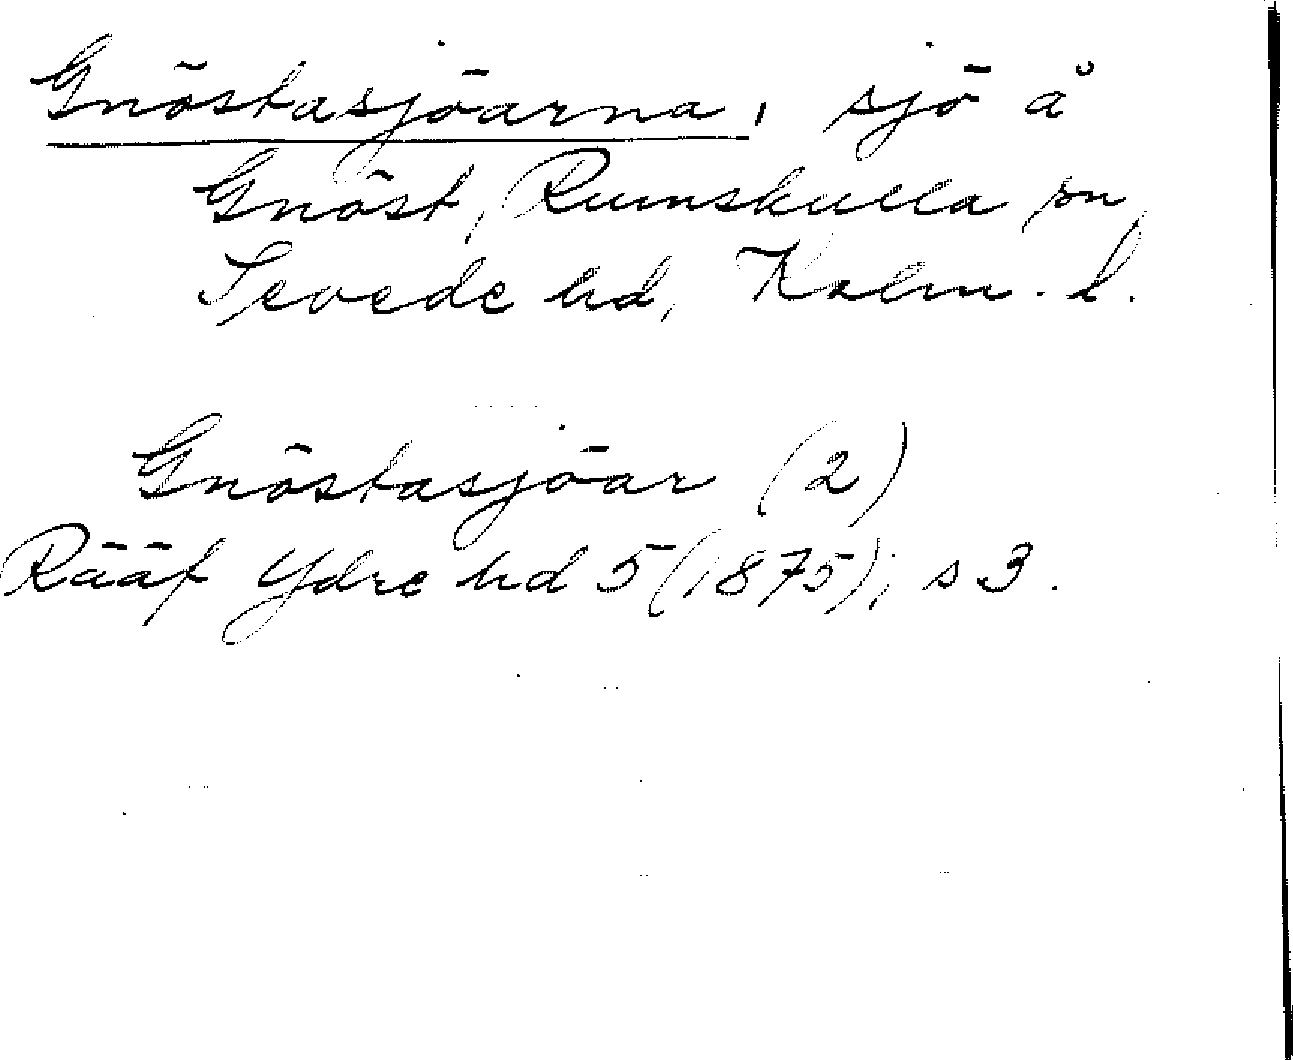 Gnöstasjöarna, sjö å
Gnöst, Rumskulla sn,
Sevede hd, Kalm. l.
Gnöstasjöar (2)
Rääf Ydre hd 5 (1875); s 3.